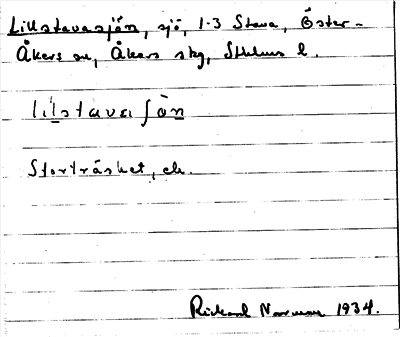 Lillstavasjön, sjö, 1-3 Stava, Öster-
Åkers sn, Åkers skg, Sthlms l.
lilstavaʃön
Storträsket, ek.
Rickard Norman 1934.